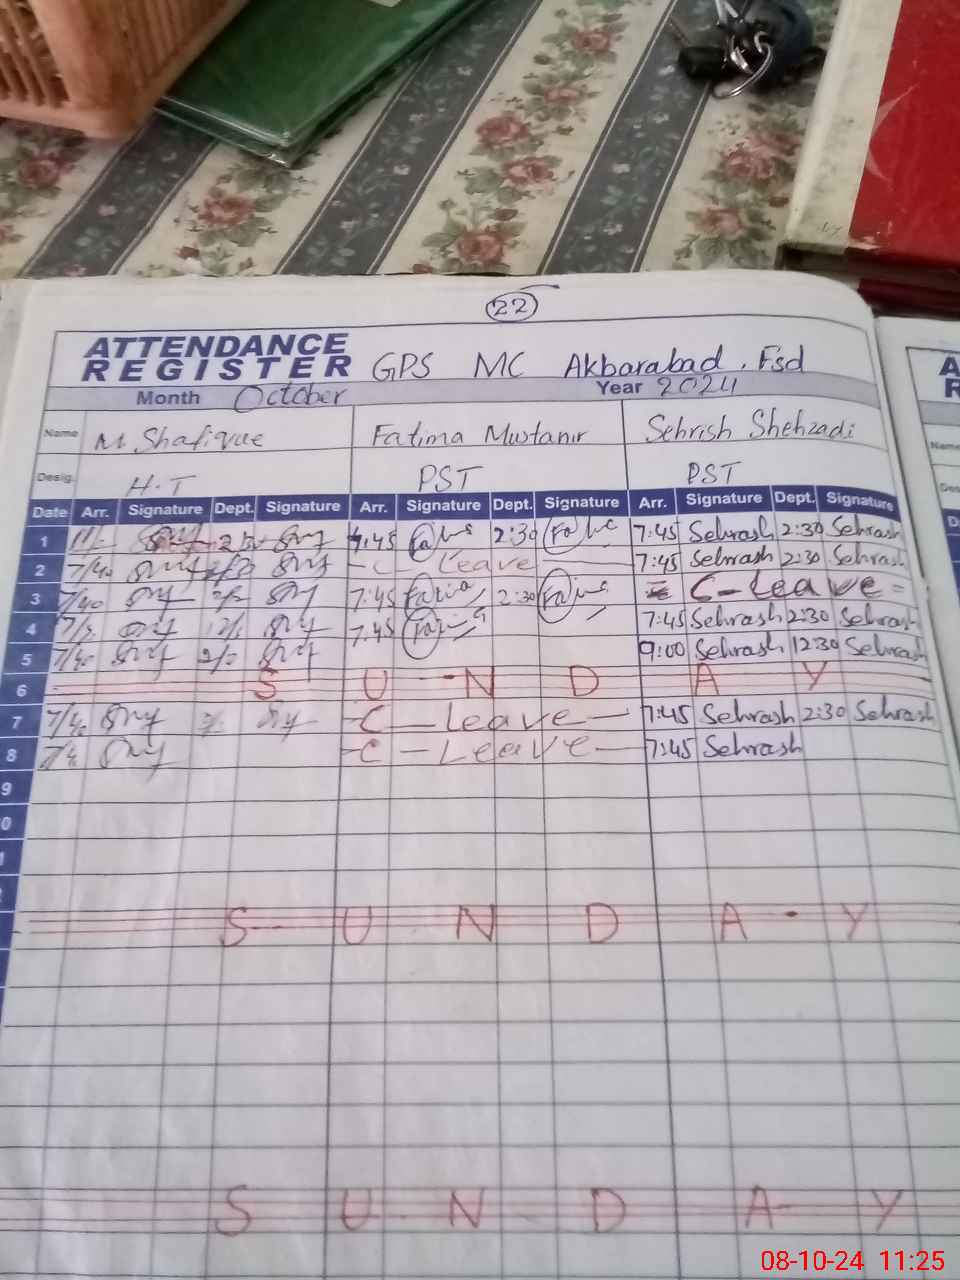 22
ATTENDANCE
REGISTER GPS MC Akbarabad. Fsd
Month October Year 2024
Name M Shafique Fatima Mustanir Sehrish Shehzadi
Desig. H.T PST PST
Date Arr. Signature Dept. Signature Arr. Signature Dept. Signature Arr. Signature Dept. Signature
1 7:45 2:30 7:45 Sehrash 2:30 Sehrash
2 7/40 - C - Leave 7:45 Sehrash 2:30 Sehrash
3 7/40 7:45 2:30 C-Leave =
4 7:45 7:45 Sehrash 2:30 Sehrash
5 7/40 9:00 Sehrash 12:30 Sehrash
6 S U N D A Y
7 -C-Leave- 7:45 Sehrash 2:30 Sehrash
8 -C-Leave- 7:45 Sehrash
9
0
1
S U N D A Y
S U N D A Y
08-10-24 11:25